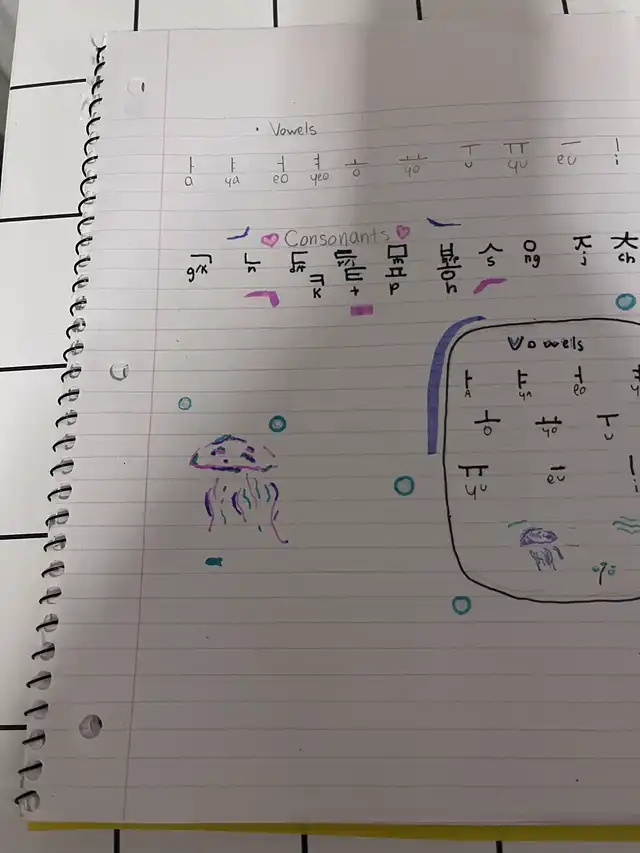 • Vowels
ㅏ ㅑ ㅓ ㅕ ㅗ ㅛ ㅜ ㅠ ㅡ ㅣ
a ya eo yeo o yo u yu eu i
Consonants
ㄱ ㄴ ㄷ ㄹ ㅁ ㅂ ㅅ ㅇ ㅈ ㅊ
g/k n d/t r/l m b/p s ng j ch
ㅋ ㅌ ㅍ ㅎ
k t p h
Vowels
ㅏ ㅑ ㅓ
A ya eo
ㅗ ㅛ ㅜ
o yo u
ㅠ ㅡ ㅣ
yu eu i